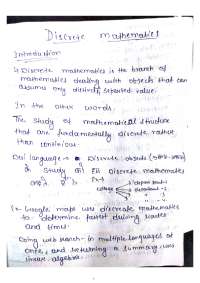 Discrete mathematics
Introduction
Discrete mathematics is the branch of
mathematics dealing with objects that can
assume only distinct, separated value.
In the other words
The study of mathematical structure
that are fundamentally discrete rather
than continious.
Our language → Discrete objects
Study Discrete mathematics
college
Ex- Google maps use discrete mathematics
to determine fastest driving routes
and times.
Doing web search in multiple languages at
once, and returning a summary uses
linear algebra.